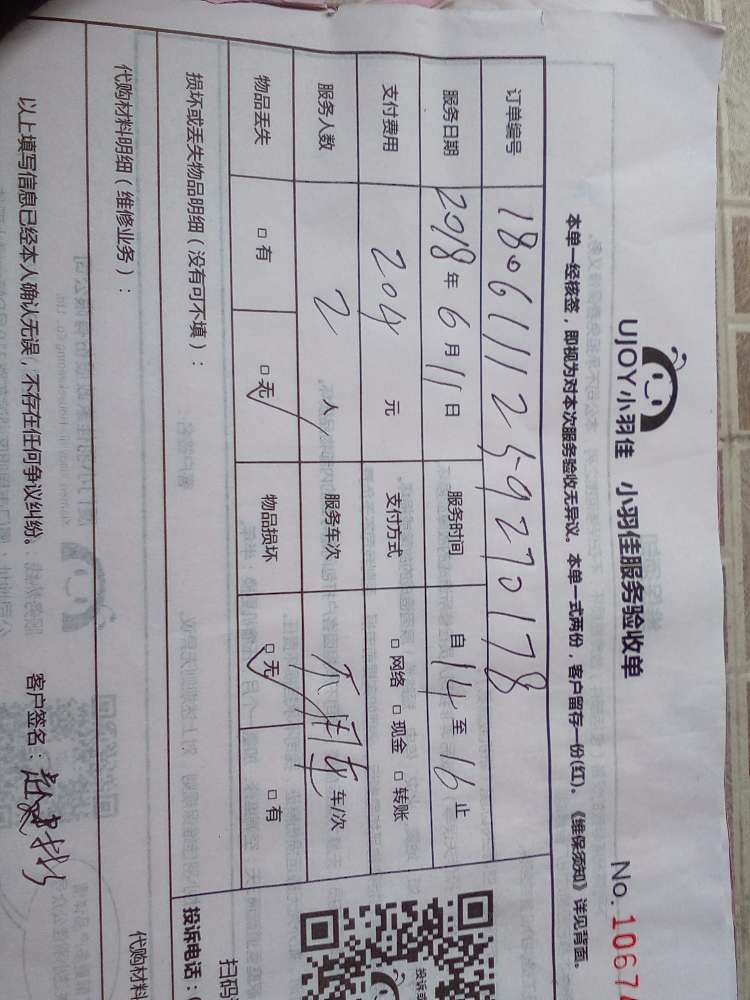 UJOY小羽佳 小羽佳服务验收单
No. 1067
本单一经核签，即视为对本次服务验收无异议。本单一式两份，客户留存一份(红)。《维保须知》详见背面。
订单编号 1806111259270178
服务日期 2018年6月11日 服务时间 自14至16止
支付费用 204 元 支付方式 □网络 □现金 □转账
服务人数 2 人 服务车次 不用车 车/次
物品丢失 □有 □无 物品损坏 □无 □有
损坏或丢失物品明细（没有可不填）：
代购材料明细（维修业务）： 代购材料
以上填写信息已经本人确认无误，不存在任何争议纠纷。 客户签名：
投诉电话：
扫码
投诉